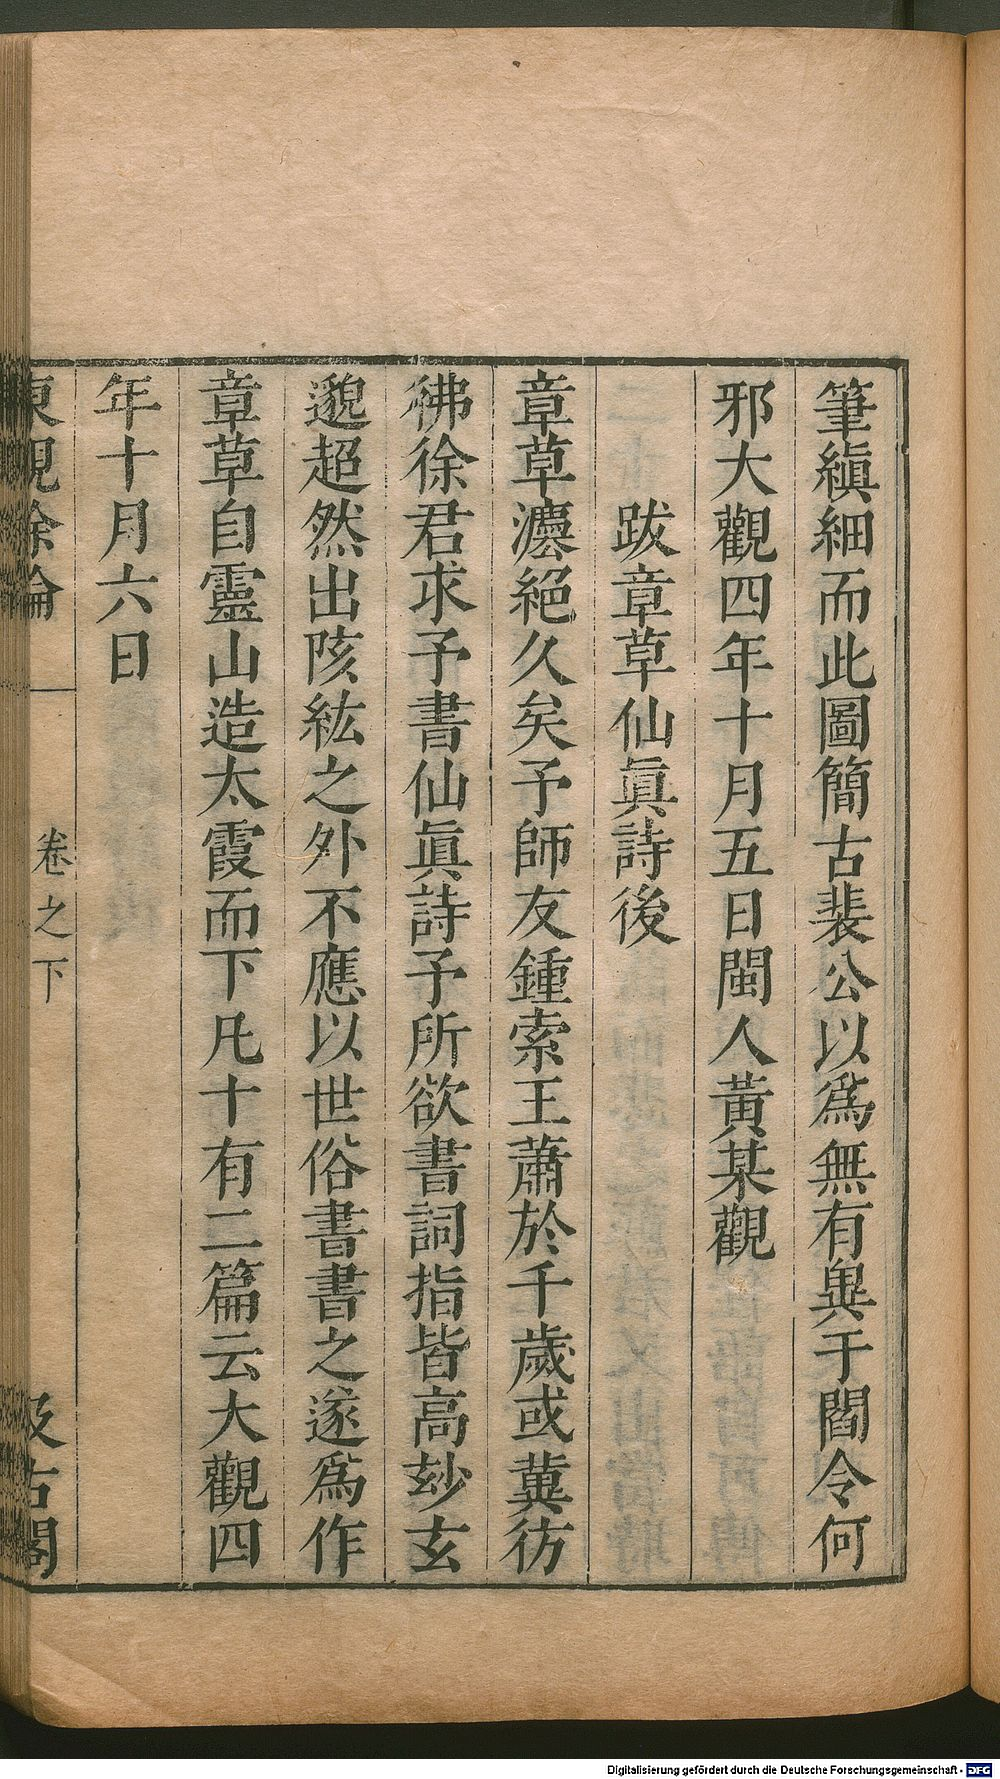 筆縝細而此圖簡古裴公以爲無有與于閻令何
邪大觀四年十月五日閩人黃某觀
跋章草仙眞詩後
章草灋絕久矣予師友鍾索王蕭於千歲或冀彷
彿徐君求予書仙眞詩予所欲書詞指皆高玅玄
邈超然出陔紘之外不應以世俗書書之遂爲作
章草自靈山造太霞而下凡十有二篇云大觀四
年十月六日
東觀餘論 卷之下 汲古閣
Digitalisierung gefördert durch die Deutsche Forschungsgemeinschaft - DFG